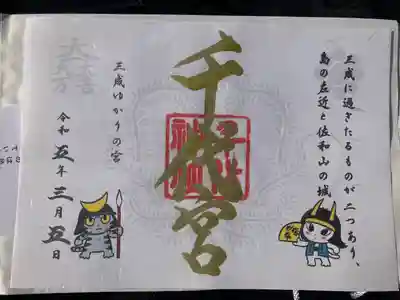 三成に過ぎたるものが二つあり、
島の左近と佐和山の城
千代宮
三成ゆかりの宮
令和五年三月五日